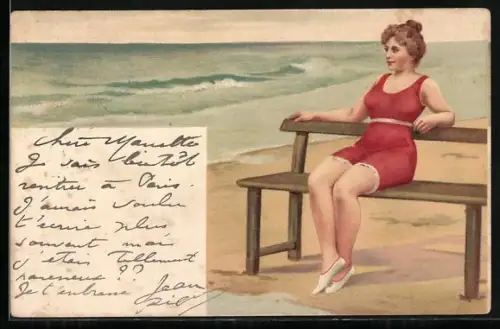 Chère Mariette
Je vais bientôt
rentrer à Paris.
J'aurais voulu
t'écrire plus
souvent mais
j'étais tellement
paresseux ??
Je t'embrasse Jean